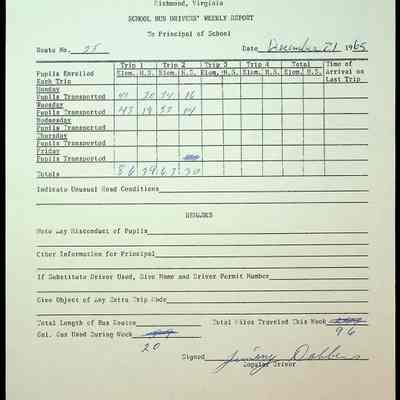 Richmond, Virginia
SCHOOL BUS DRIVERS' WEEKLY REPORT
To Principal of School
Route No. 25 Date December 21 1965
Trip 1 Trip 2 Trip 3 Trip 4 Total Time of
Pupils Enrolled Elem. H.S. Elem. H.S. Elem. H.S. Elem. H.S. Elem. H.S. Arrival on
Each Trip Last Trip
Monday
Pupils Transported 41 20 34 16
Tuesday
Pupils Transported 45 19 33 14
Wednesday
Pupils Transported
Thursday
Pupils Transported
Friday
Pupils Transported
Totals 86 39 67 30
Indicate Unusual Road Conditions
REMARKS
Note Any Misconduct of Pupils
Other Information for Principal
If Substitute Driver Used, Give Name and Driver Permit Number
Give Object of Any Extra Trip Made
Total Length of Bus Route Total Miles Traveled This Week
96
Gal. Gas Used During Week
20
Signed Jimmy Dobbins
Regular Driver